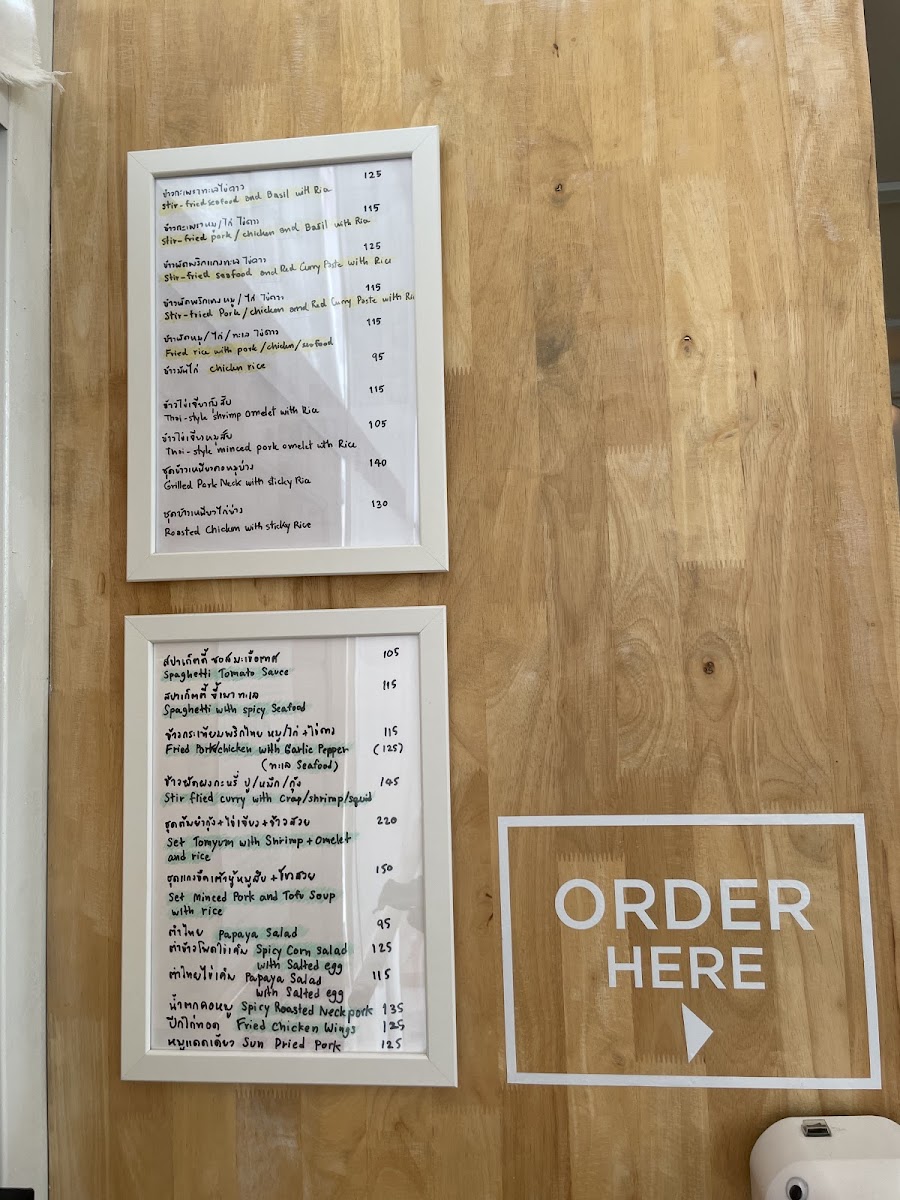 ข้าวกะเพราทะเลไข่ดาว 125
Stir-fried seafood and Basil with Rice
ข้าวกะเพราหมู/ไก่ ไข่ดาว 115
Stir-fried pork/chicken and Basil with Rice
ข้าวผัดพริกแกงทะเล ไข่ดาว 125
Stir-fried seafood and Red Curry Paste with Rice
ข้าวผัดพริกแกง หมู/ไก่ ไข่ดาว 115
Stir-fried Pork/chicken and Red Curry Paste with Ri
ข้าวผัดหมู/ไก่/ทะเล ไข่ดาว 115
Fried rice with pork/chicken/seafood
ข้าวมันไก่ chicken rice 95
ข้าวไข่เจียวกุ้งสับ 115
Thai-style shrimp omelet with Rice
ข้าวไข่เจียวหมูสับ 105
Thai-style minced pork omelet with Rice
ชุดข้าวเหนียวคอหมูย่าง 140
Grilled Pork Neck with sticky Rice
ชุดข้าวเหนียวไก่ย่าง 130
Roasted Chicken with sticky Rice
สปาเก็ตตี้ ซอสมะเขือเทศ 105
Spaghetti Tomato Sauce
สปาเก็ตตี้ ขี้เมาทะเล 115
Spaghetti with spicy Seafood
ข้าวกระเทียมพริกไทย หมู/ไก่ +ไข่ดาว 115
Fried Pork/chicken with Garlic Pepper (125)
(ทะเล Seafood)
ข้าวผัดผงกะหรี่ ปู/หมึก/กุ้ง 145
Stir flied curry with Crap/shrimp/squid
ชุดต้มยำกุ้ง+ไข่เจียว+ข้าวสวย 220
Set Tomyum with Shrimp + Omelet
and rice
ชุดแกงจืดเต้าหู้หมูสับ +ข้าวสวย 150
Set Minced Pork and Tofu Soup
with rice
ตำไทย Papaya Salad 95
ตำข้าวโพดไข่เค็ม Spicy Corn Salad 125
with Salted egg
ตำไทยไข่เค็ม Papaya Salad 115
with Salted egg
น้ำตกคอหมู Spicy Roasted Neck pork 135
ปีกไก่ทอด Fried Chicken Wings 125
หมูแดดเดียว Sun Dried Pork 125
ORDER
HERE